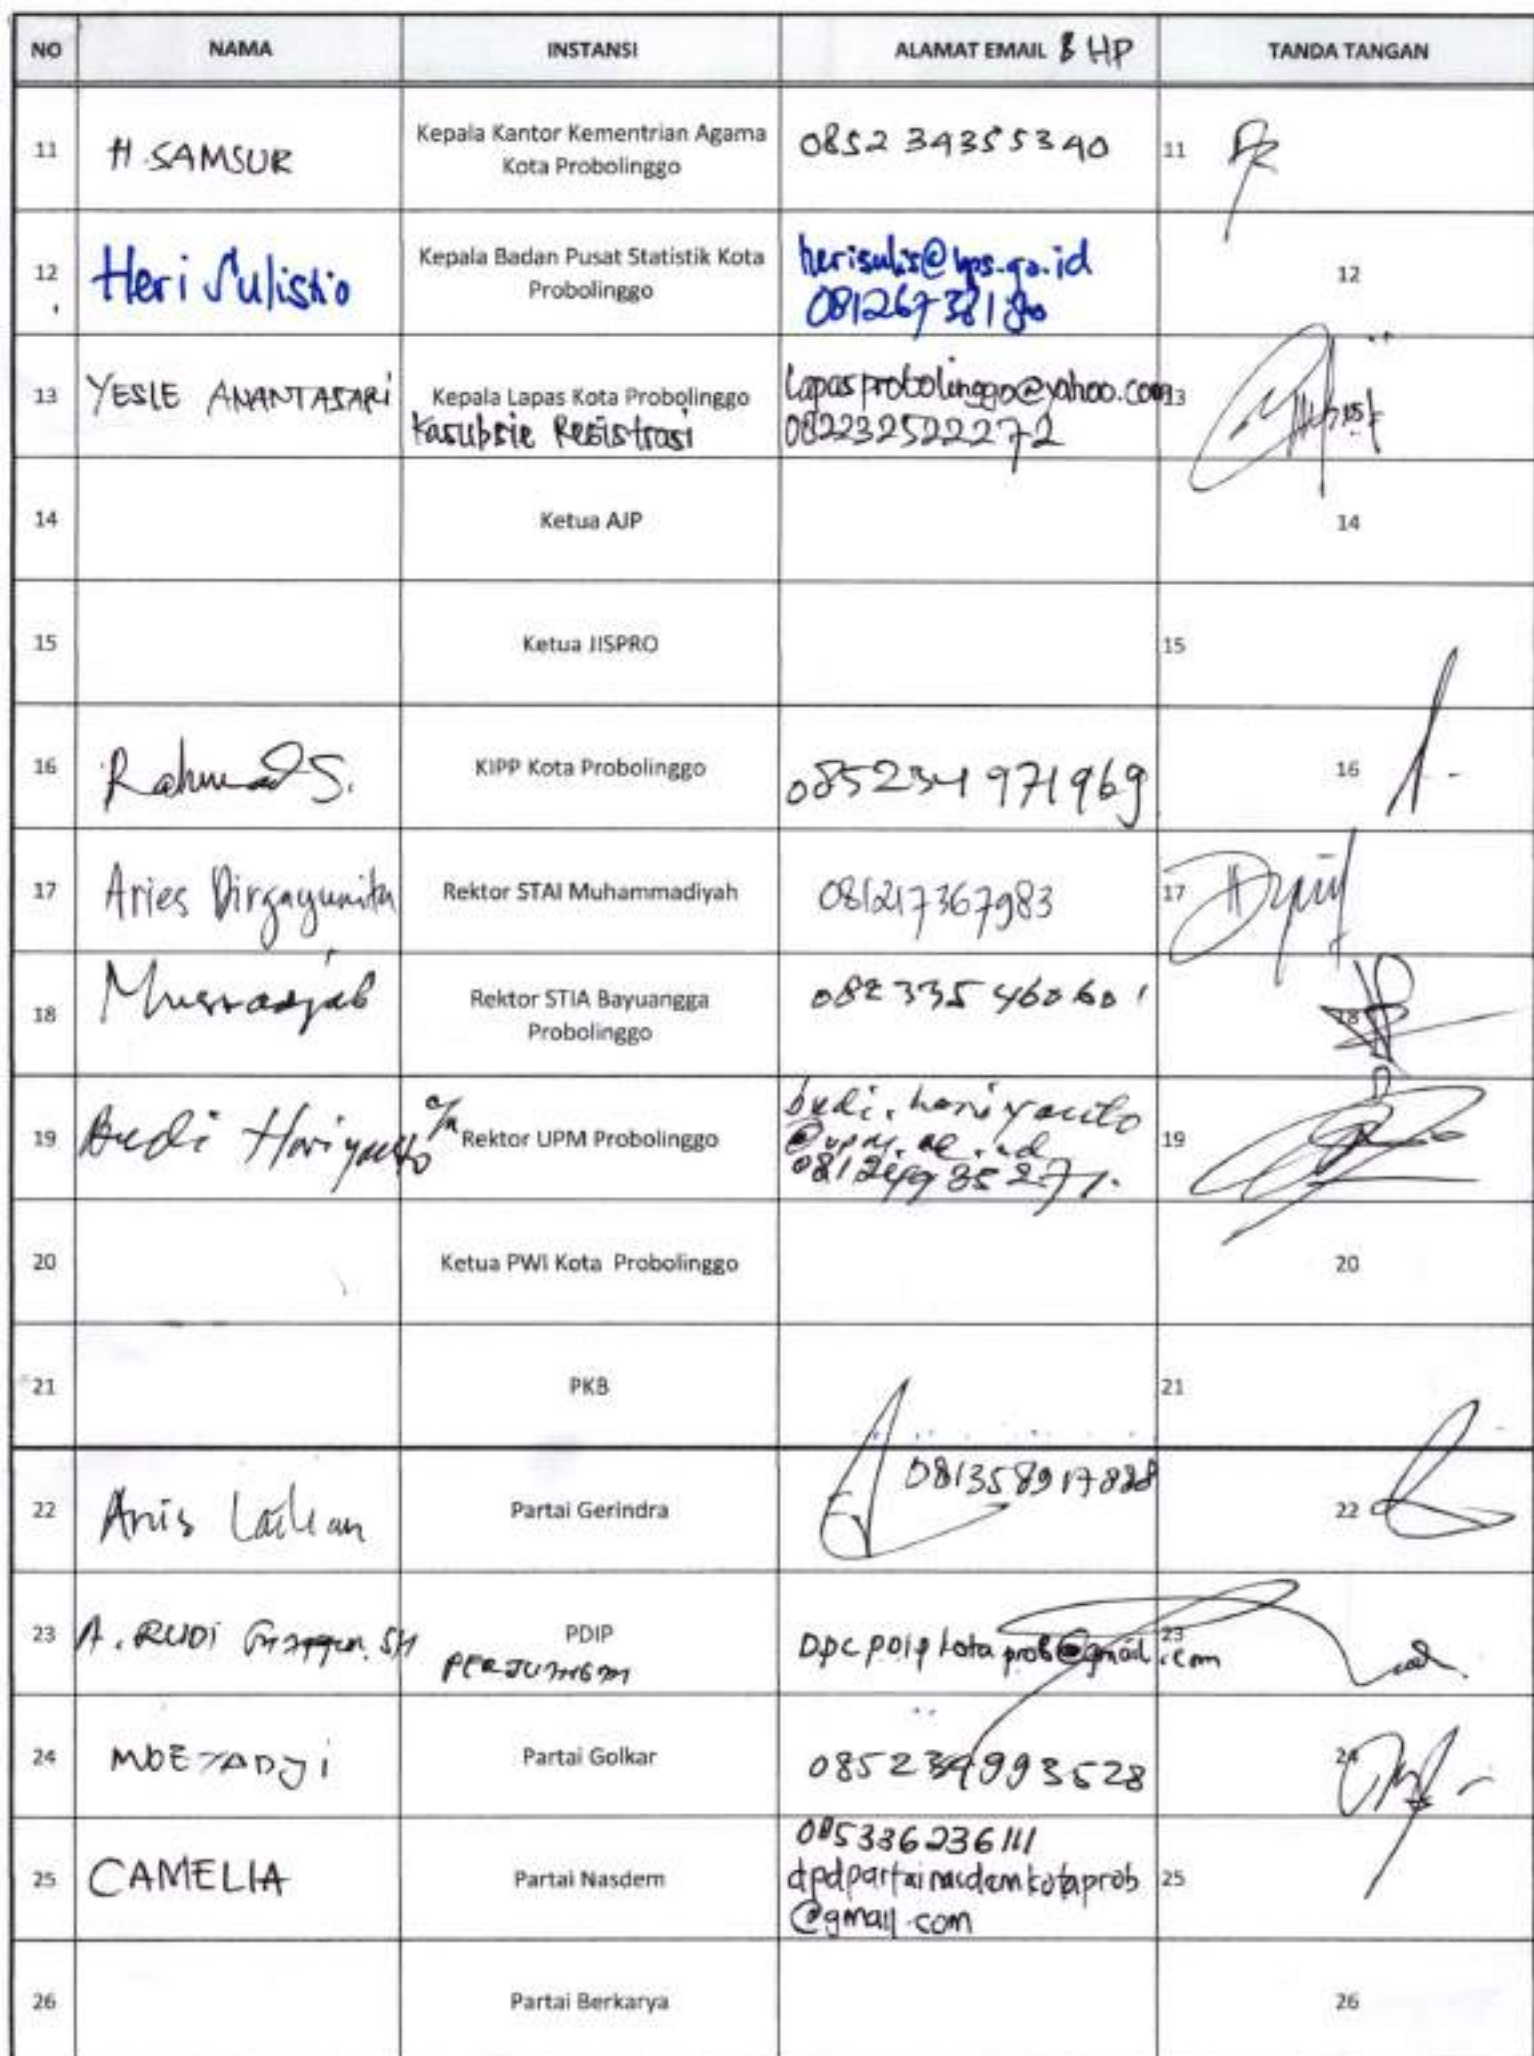 NO NAMA INSTANSI ALAMAT EMAIL & HP TANDA TANGAN
11 H. SAMSUR Kepala Kantor Kementrian Agama 085234355340 11
Kota Probolinggo
12 Heri Sulistio Kepala Badan Pusat Statistik Kota herisulis@bps.go.id 12
Probolinggo 08126738180
13 YESLE ANANTASARI Kepala Lapas Kota Probolinggo Lapasprobolinggo@yahoo.com 13
Kasubsie Registrasi 082232522272
14 Ketua AJP 14
15 Ketua JISPRO 15
16 Rahmad S. KIPP Kota Probolinggo 085234971969 16
17 Aries Dirgayunita Rektor STAI Muhammadiyah 081217367983 17
18 Rektor STIA Bayuangga 082335460601 18
Probolinggo
19 Budi Hariyanto a/n Rektor UPM Probolinggo budi.hariyanto 19
@upm.ac.id
081249935271.
20 Ketua PWI Kota Probolinggo 20
21 PKB 21
22 Anis Partai Gerindra 081358917888 22
23 A. RUDI SH PDIP Dpcpdipkotaprob@gmail.com 23
24 MOEZADJI Partai Golkar 085234993528 24
25 CAMELIA Partai Nasdem 085336236111 25
dpdpartainasdemkotaprob
@gmail.com
26 Partai Berkarya 26